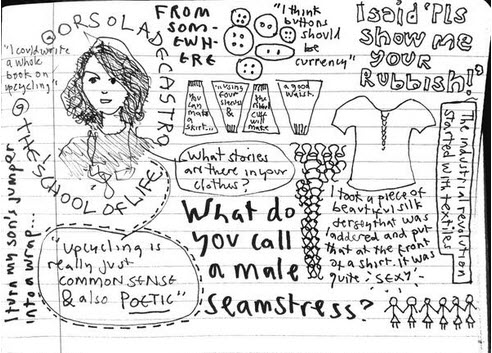 ORSOLA DE CASTRO
@ THE SCHOOL OF LIFE
"I could write
a whole
book on
upcycling"
FROM
SOM-
EWH-
ERE
"I think
buttons
should
be
currency"
I said 'Pls
show me
your
Rubbish!'
You
can
make
a
skirt...
"using
four
sleeves
&
the
ribbed
cuff
will
make
a good
waist.
What stories
are there in your
clothes?
The industrial revolution
started with textiles
I took a piece of
beautiful silk
jersey that was
laddered and put
that at the front
of a shirt. It was
quite 'SEXY'
What do
you call
a male
seamstress?
"Upcycling is
really just
COMMON SENSE
& also POETIC"
I turn my son's jumper
into a wrap...